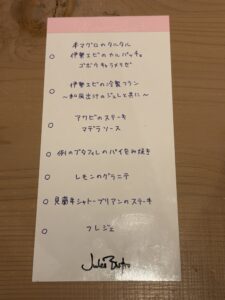 本マグロのタルタル
伊勢エビのカルパッチョ
ゴボウキャラメリゼ
伊勢エビの冷製フラン
〜和風出汁のジュレと共に〜
アワビのステーキ
マデラソース
仔鳩とフォアグラのパイ包み焼き
レモンのグラニテ
見蘭牛シャトーブリアンのステーキ
フレジェ
Jules Bistro